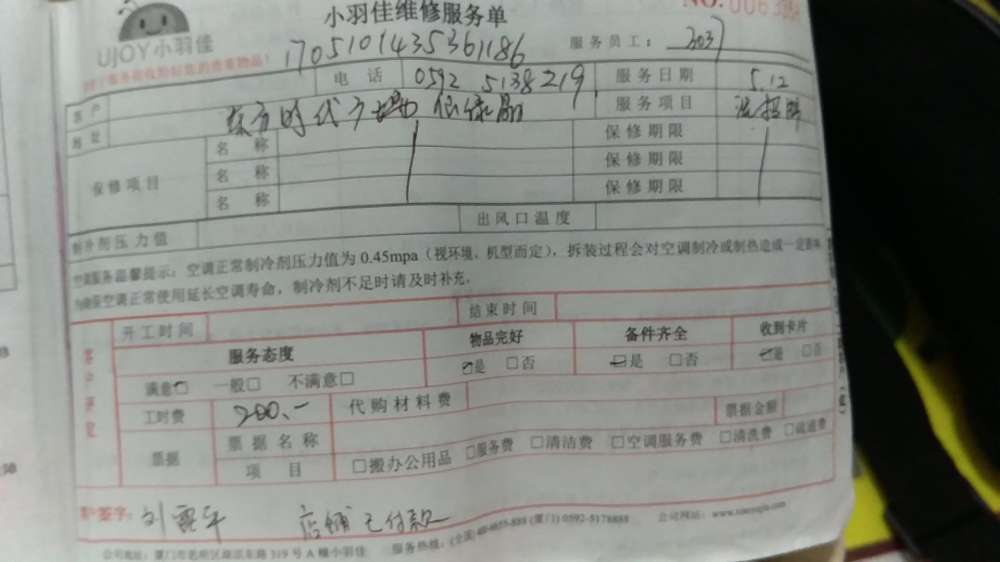 小羽佳维修服务单
NO.
UJOY小羽佳
1705101435361186
服务员工：
电话 0592 5138219 服务日期 5.12
客户
地址 东方时代广场 服务项目
保修项目 名称 保修期限
名称 保修期限
名称 保修期限
制冷剂压力值 出风口温度
空调服务温馨提示：空调正常制冷剂压力值为0.45mpa（视环境、机型而定），拆装过程会对空调制冷或制热造成一定影响
为确保空调正常使用延长空调寿命，制冷剂不足时请及时补充。
客户评定 开工时间 结束时间
服务态度 物品完好 备件齐全 收到卡片
满意□ 一般□ 不满意□ 是 □否 是 □否 是 □否
工时费 200.- 代购材料费
票据 票据名称 票据金额
项目 □搬办公用品 □服务费 □清洁费 □空调服务费 □清洗费 □疏通费
客户签字： 店铺已付款
服务热线：(全国) (厦门) 0592-5178888 公司网址：www.xiaoyujia.com
公司地址：厦门市思明区 东路319号A幢小羽佳